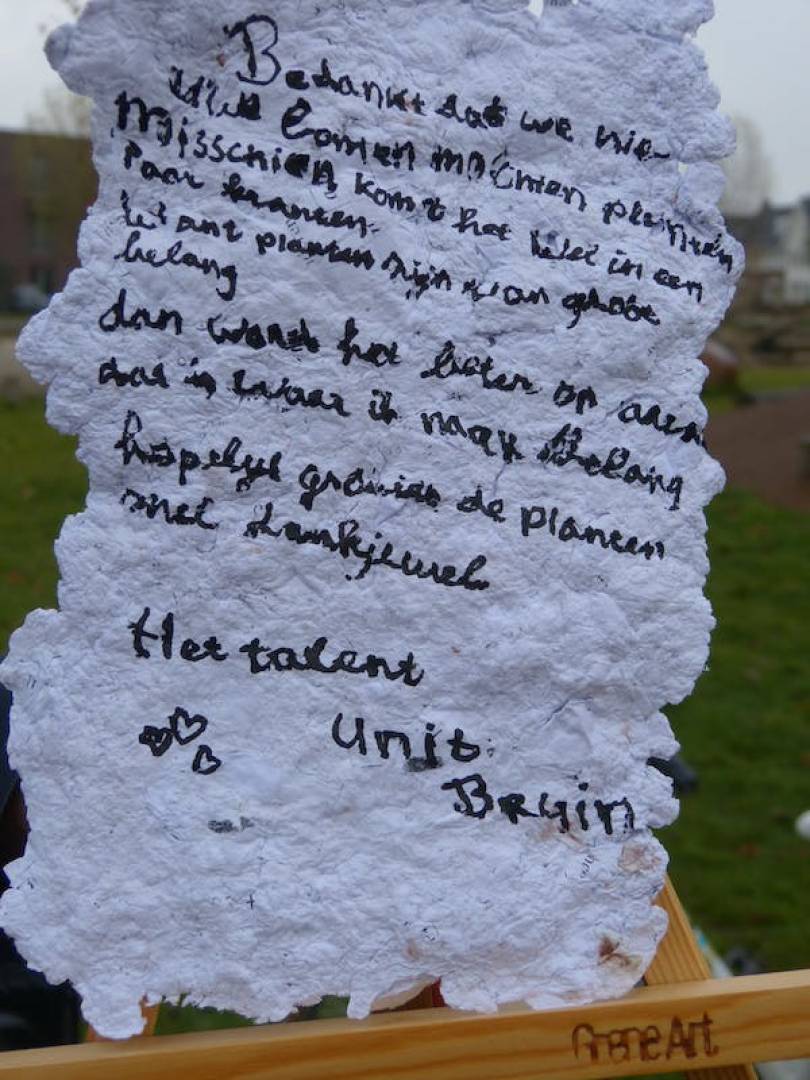 Bedankt dat we nie-
uwe bomen mochten planten
Misschien komt het wel in een
Paar kranten.
Want planten zijn van groote
belang
dan word het beter op
dat is waar ik naar belang
hopelijk groeien de planten
met dankjewel
Het talent
Unit
Bruin
GreneArt